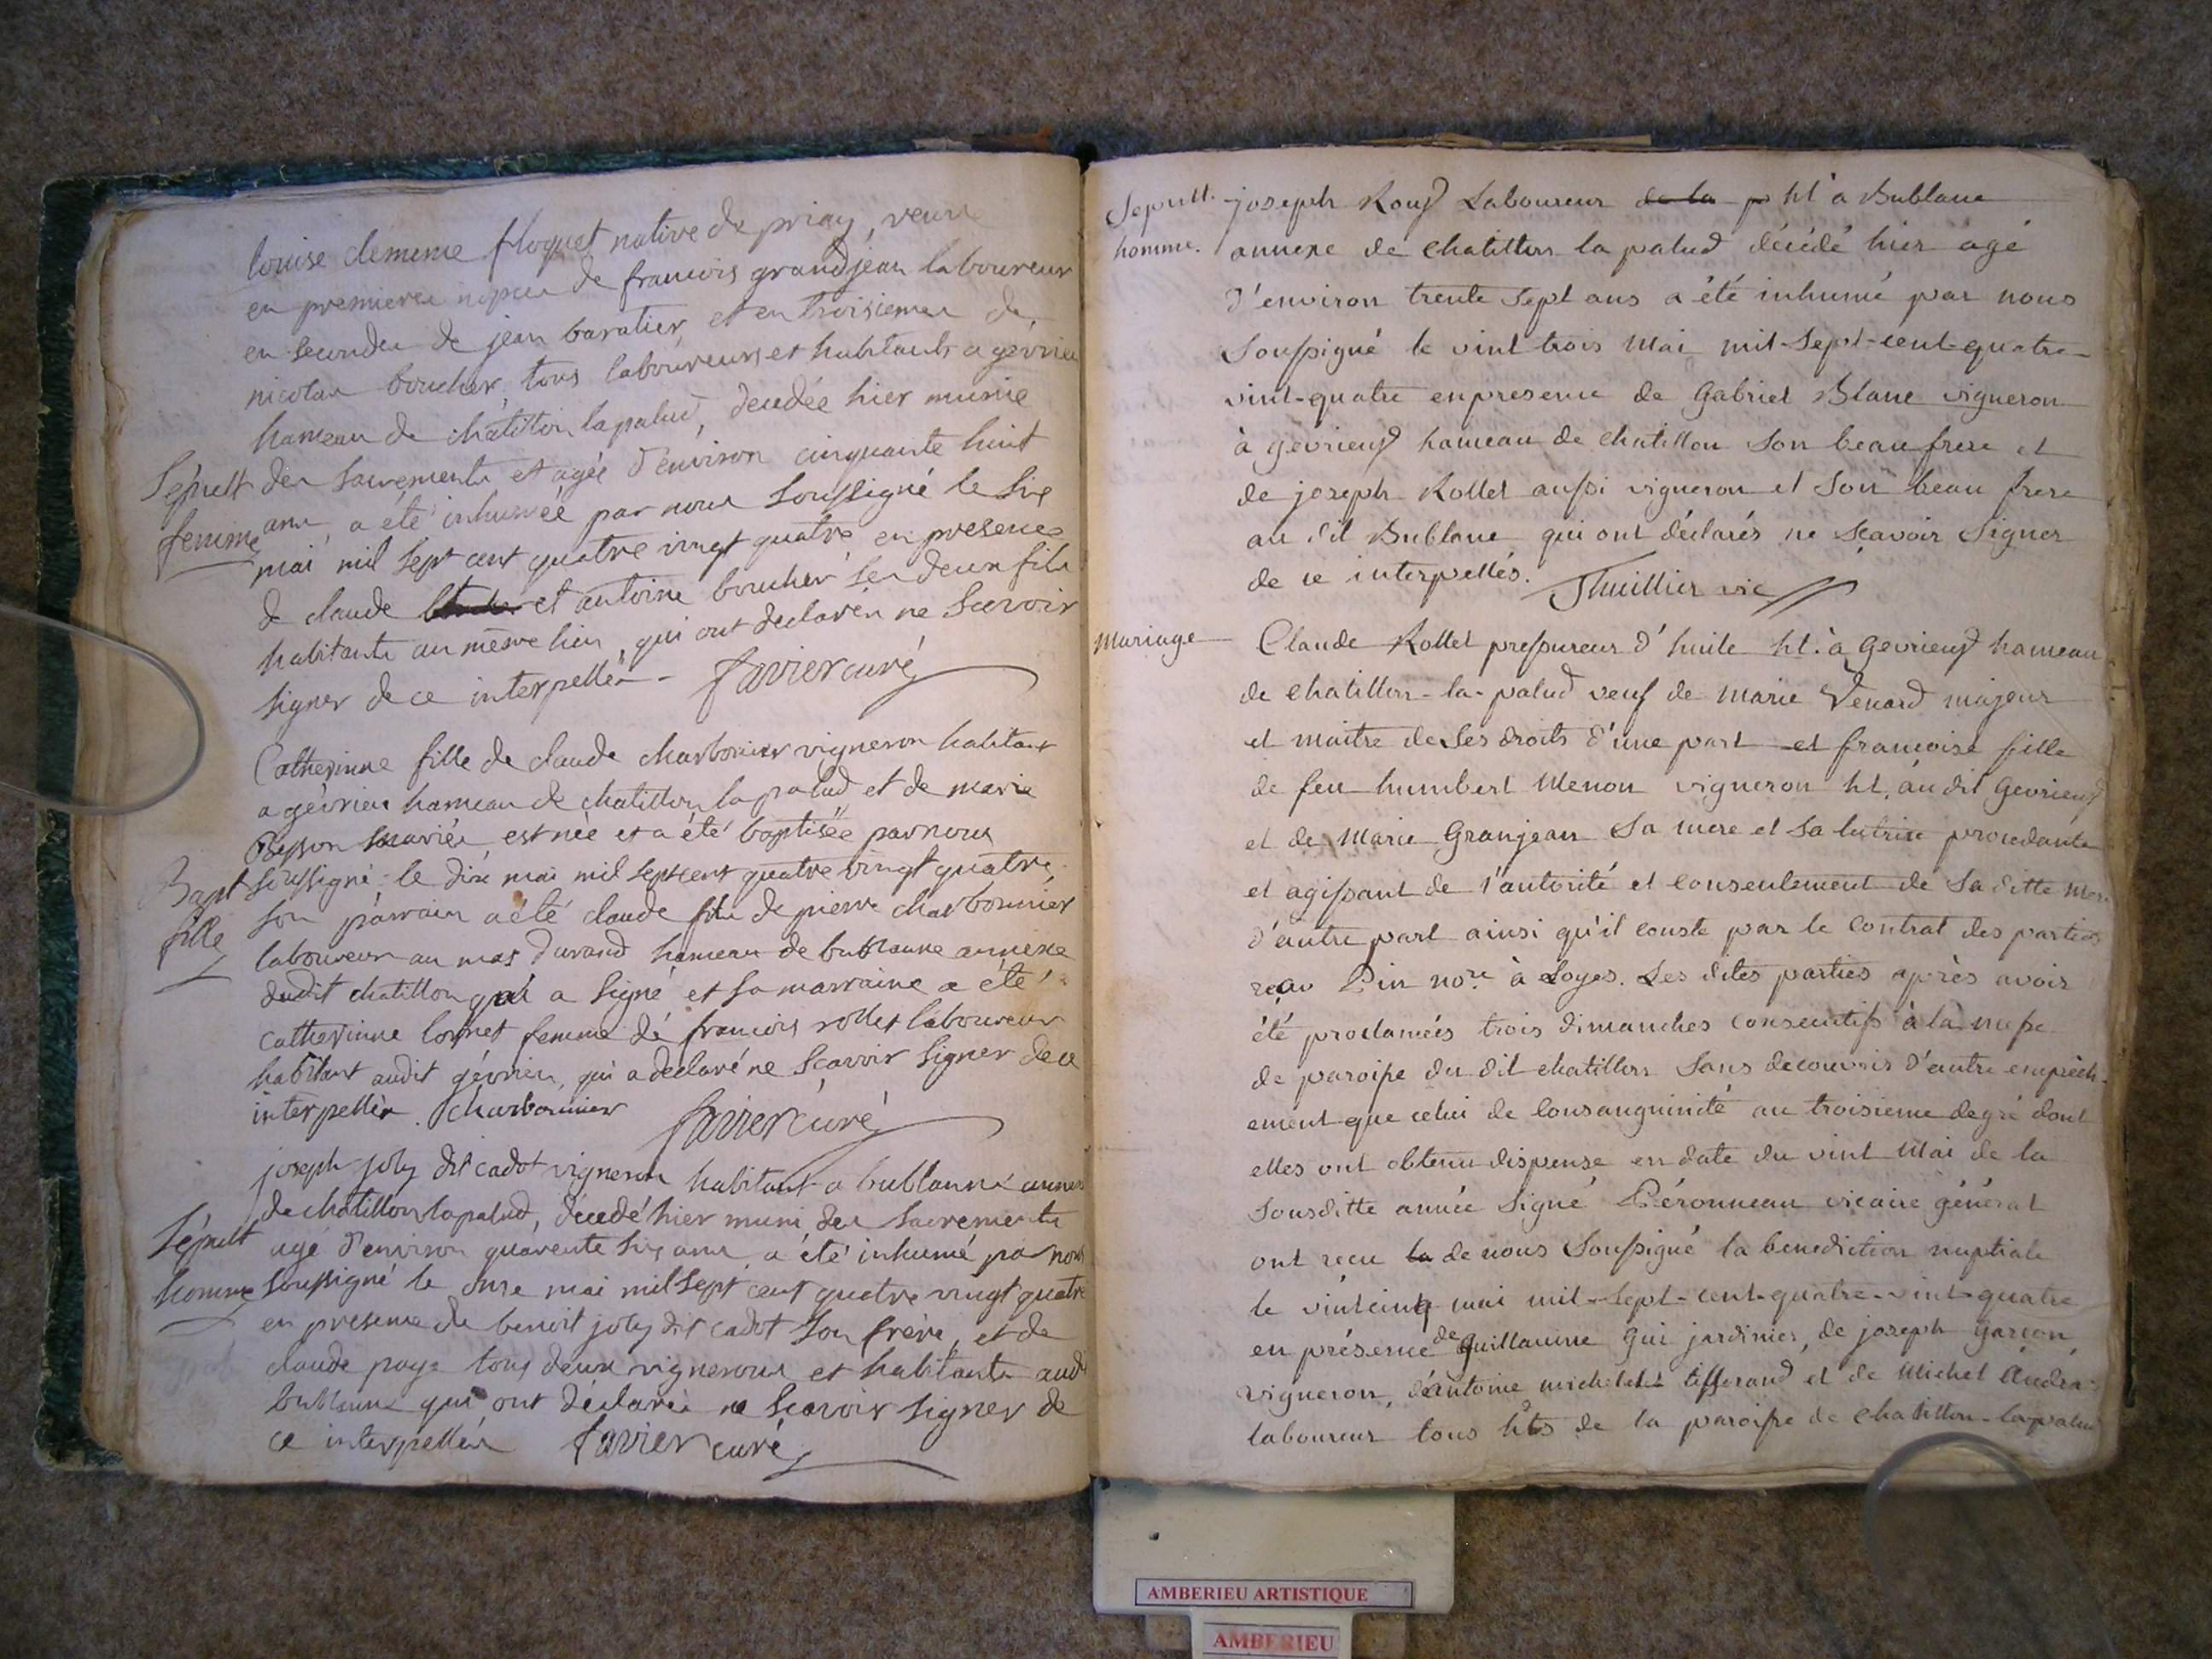 louise clemence floquet native de priay, veuve
en premieres nopces de francois grandjean laboureur
en secondes de jean baratier et en troisiemes de
nicolas boucher, tous laboureurs et habitants a gevrieu
hameau de châtillon lapalud, decedée hier munie
Sépult des sacrements et agée d'environ cinquante huit
femme ans, a été inhumée par nous soussigné le six
mai mil sept cent quatre vingt quatre en presence
de claude et antoine boucher ses deux fils
habitants au même lieu, qui ont declarés ne scavoir
signer de ce interpellés - favier curé
Catherinne fille de claude charbonier vigneron habitant
a gévrieu hameau de chatillon la palud et de marie
mariés est née et a été baptisée par nous
Bapt soussigné le dix mai mil sept cent quatre vingt quatre,
fille son parrain a été claude fils de pierre charbonnier
laboureur au mas durand hameau de bublanne annexe
dudit chatillon qui a signé et sa marraine a été
catherinne femme de francois rollet laboureur
habitant audit gévrieu, qui a declaré ne scavoir signer de ce
interpellés. Charbonnier favier curé
joseph joly dit cadot vigneron habitant a bublanne annexe
de chatillon lapalud, décedé hier muni des sacrements
Sépult agé d'environ quarente six ans a été inhumé par nous
homme soussigné le onze mai mil sept cent quatre vingt quatre
en presence de benoit joly dit cadot son frère, et de
claude paye tous deux vignerons et habitants audt
bublanne qui ont déclarés ne scavoir signer de
ce interpellés favier curé
Sepult. joseph Rouy Laboureur de la p ht à Bublane
homme. annexe de Chatillon la palud décédé hier agé
d'environ trente sept ans a été inhumé par nous
soussigné le vint trois mai mil-sept-cent-quatre-
vint-quatre en presence de Gabriel Blanc vigneron
à gevrieux hameau de chatillon son beau frere et
de joseph Rollet aussi vigneron et son beau frere
au dit Bublane qui ont déclarés ne sçavoir signer
de ce interpellés. Thuillier vic
Mariage Claude Rollet pressureur d'huile ht. à Gevrieux hameau
de chatillon-la-palud veuf de marie Venard majeur
et maitre de ses droits d'une part et francoise fille
de feu humbert Menon vigneron ht. audit Gevrieux
et de Marie Granjean sa mere et sa tutrice procedante
et agissant de l'autorité et consentement de sa ditte mere
d'autre part ainsi qu'il conste par le contrat des parties
reçu Pin nore à Loyes. Les dites parties après avoir
été proclamées trois dimanches consecutifs à la messe
de paroisse du dit chatillon sans decouvrir d'autre empêch-
ement que celui de consanguinité au troisieme degré dont
elles ont obtenu dispense en date du vint Mai de la
sousditte année signé Péronneau vicaire général
ont recu la de nous soussigné la benediction nuptiale
le vintcinq mai mil-sept-cent-quatre-vint-quatre
en présence de Guillaume Gui jardinier, de joseph garcon
vigneron, d'antoine michelet tisserand et de Michel
laboureur tous hts de la paroisse de chatillon-la-palud
AMBERIEU ARTISTIQUE
AMBERIEU